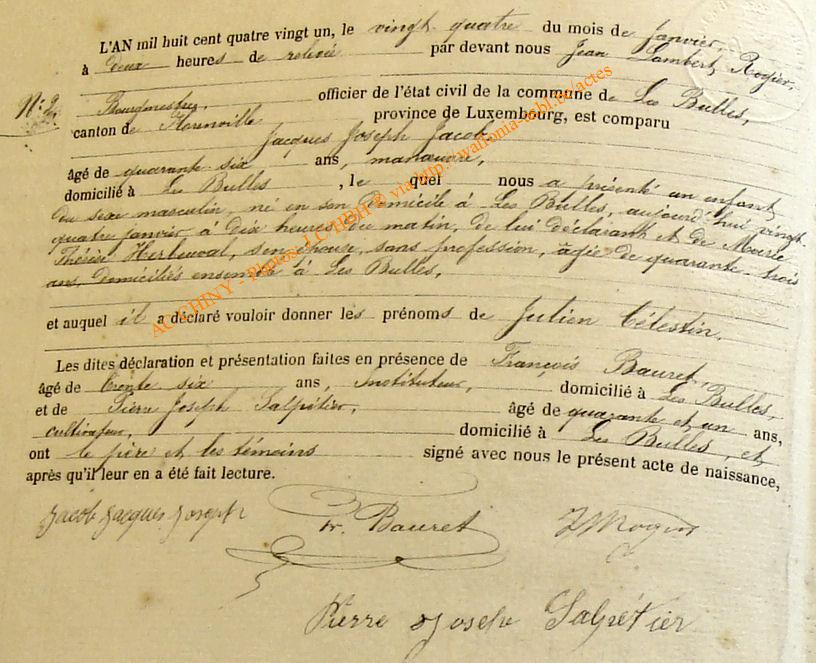 L'AN mil huit cent quatre vingt un, le vingt quatre du mois de Janvier,
à deux heures de relevée par devant nous Jean Lambert, Rogier,
N: 2
Bourgmestre, officier de l'état civil de la commune de Les Bulles,
canton de Florenville province de Luxembourg, est comparu
Jacques Joseph Jacob,
âgé de quarante-six ans, manœuvre,
domicilié à Les Bulles, le quel nous a présenté un enfant
du sexe masculin, né en son domicile à Les Bulles, aujourd'hui vingt
quatre janvier à dix heures du matin, de lui déclarant et de Marie
Thérèse Herbeuval, son épouse, sans profession, âgée de quarante-trois
ans, domiciliés ensemble à Les Bulles,
et auquel il a déclaré vouloir donner les prénoms de Julien Célestin.
Les dites déclaration et présentation faites en présence de François Bauret,
âgé de trente six ans, Instituteur, domicilié à Les Bulles,
et de Pierre Joseph Salpétier, âgé de quarante et un ans,
cultivateur, domicilié à Les Bulles, et
ont le père et les témoins signé avec nous le présent acte de naissance,
après qu'il leur en a été fait lecture.
Jacob Jacques Joseph Fr. Bauret
Pierre Joseph Salpétier
AC CHINY - photos LUTHBH © via http://wallonia-asbl.be/actes